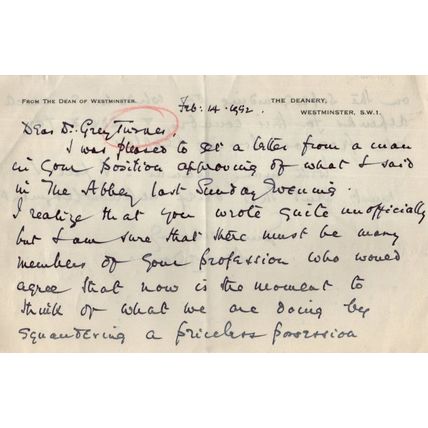 FROM THE DEAN OF WESTMINSTER.
THE DEANERY,
WESTMINSTER, S.W.1.
Feb: 14. 1952
Dear Dr. Grey Turner,
I was pleased to get a letter from a man
in your position approving of what I said
in The Abbey last Sunday Evening.
I realize that you wrote quite unofficially
but I am sure that there must be many
members of your profession who would
agree that now is the moment to
think of what we are doing by
squandering a priceless possession